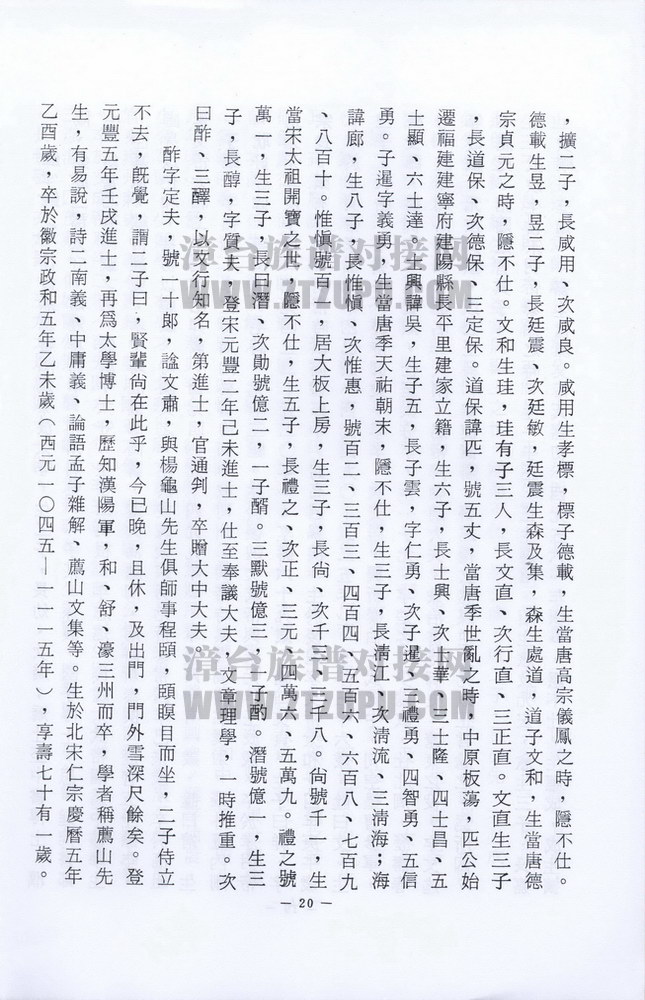 ，擴二子，長咸用、次咸良。咸用生孝標，標子德載，生當唐高宗儀鳳之時，隱不仕。
德載生昱，昱二子，長廷震、次廷敏，廷震生森及集，森生處道，道子文和，生當唐德
宗貞元之時，隱不仕。文和生珪，珪有子三人，長文直、次行直、三正直。文直生三子
，長道保、次德保、三定保。道保諱匹，號五丈，當唐季世亂之時，中原板蕩，匹公始
遷福建建寧府建陽縣長平里建家立籍，生六子，長士興、次士華、三士隆、四士昌、五
士顯、六士達。士興諱吳，生子五，長子雲，字仁勇、次子暹、三禮勇、四智勇、五信
勇。子暹字義勇，生當唐季天祐朝末，隱不仕，生三子，長清江、次清流、三清海；海
諱廊，生八子，長惟愼、次惟惠，號百二、三百三、四百四、五百六、六百八、七百九
、八百十。惟愼號百一，居大板上房，生三子，長尙、次千三、三千八。尙號千一，生
當宋太祖開寶之世，隱不仕，生五子，長禮之、次正、三元、四萬六、五萬九。禮之號
萬一，生三子，長曰潛、次勛號億二，一子醑。三默號億三，一子酌。潛號億一，生三
子，長醇，字質夫，登宋元豐二年己未進士，仕至奉議大夫，文章理學，一時推重。次
曰酢、三醳，以文行知名，第進士，官通判，卒贈大中大夫。
酢字定夫，號一十郎，諡文肅，與楊龜山先生俱師事程頤，頤瞑目而坐，二子侍立
不去，旣覺，謂二子曰，賢輩尙在此乎，今已晚，且休，及出門，門外雪深尺餘矣。登
元豐五年壬戌進士，再爲太學博士，歷知漢陽軍，和、舒、濠三州而卒，學者稱薦山先
生，有易說，詩二南義、中庸義、論語孟子雜解、薦山文集等。生於北宋仁宗慶曆五年
乙酉歲，卒於徽宗政和五年乙未歲（西元一〇四五—一一一五年），享壽七十有一歲。
— 20 —
漳台族谱对接网
WWW.ZTZUPU.COM
漳台族谱对接网
WWW.ZTZUPU.COM